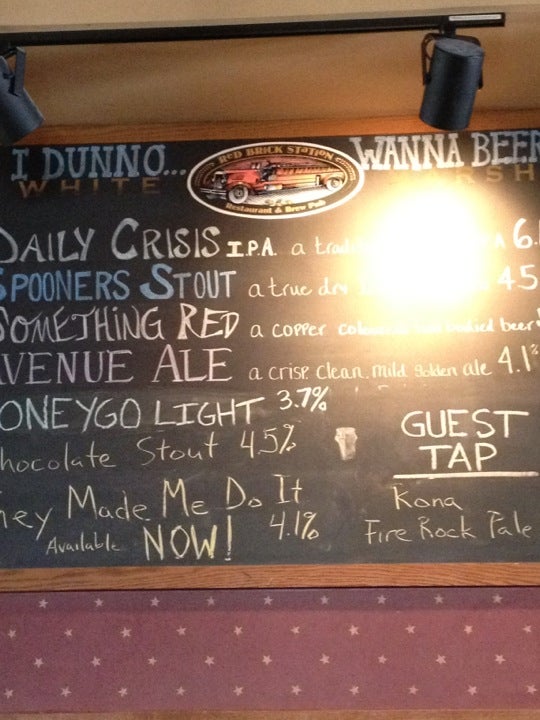 I DUNNO...
RED BRICK STATION
Restaurant & Brew Pub
WANNA BEER
WHITE
MARSH
DAILY CRISIS I.P.A. a 6.
SPOONERS STOUT a true dry 4.5
SOMETHING RED a copper coloured bodied beer
AVENUE ALE a crisp, clean, mild golden ale 4.1%
ONEYGO LIGHT 3.7%
Chocolate Stout 4.5%
hey Made Me Do It
4.1%
Available NOW!
GUEST
TAP
Kona
Fire Rock Pale